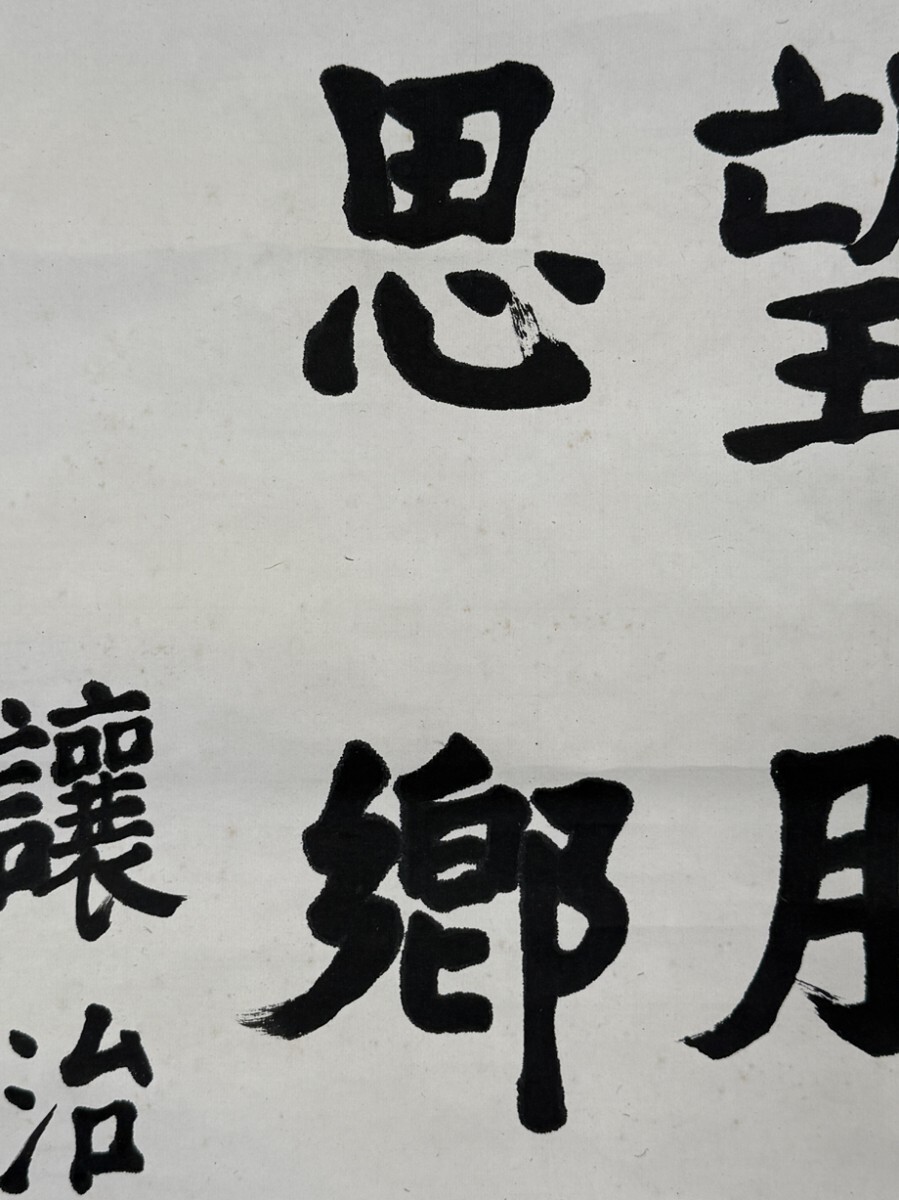 望月
思鄉
讓治